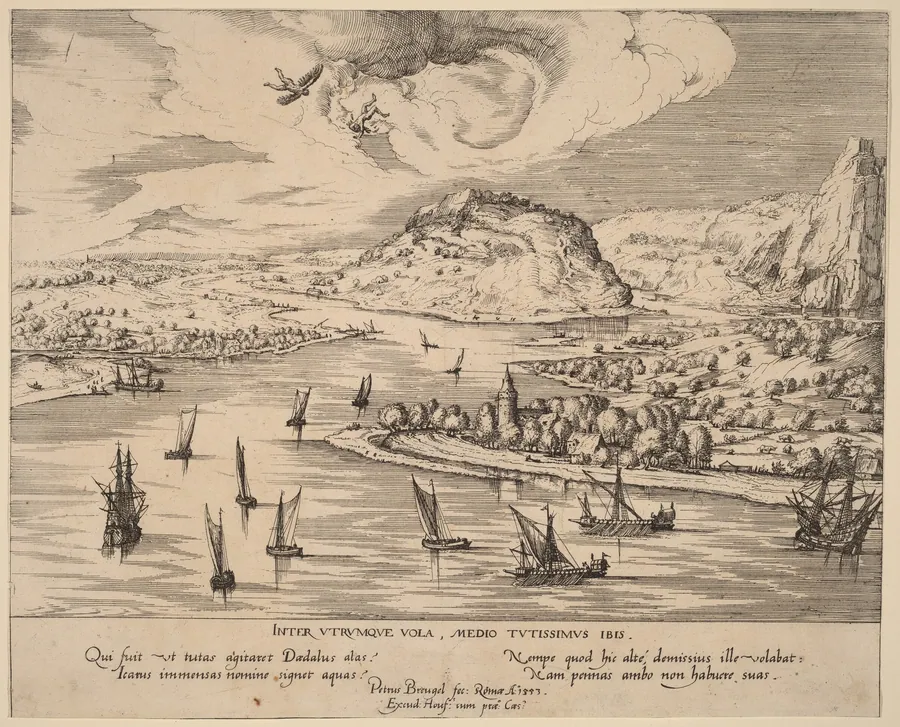 INTER VTRVMQVE VOLA, MEDIO TVTISSIMVS IBIS.
Qui fuit vt tutas agitaret Dædalus alas?
Icarus immensas nomine signet aquas?
Nempe quod hic alte, demissius ille volabat:
Nam pennas ambo non habuere suas.
Petrus Breugel fec: Romæ Aº 1553
Excud: Houf: cum præ: Cæs: